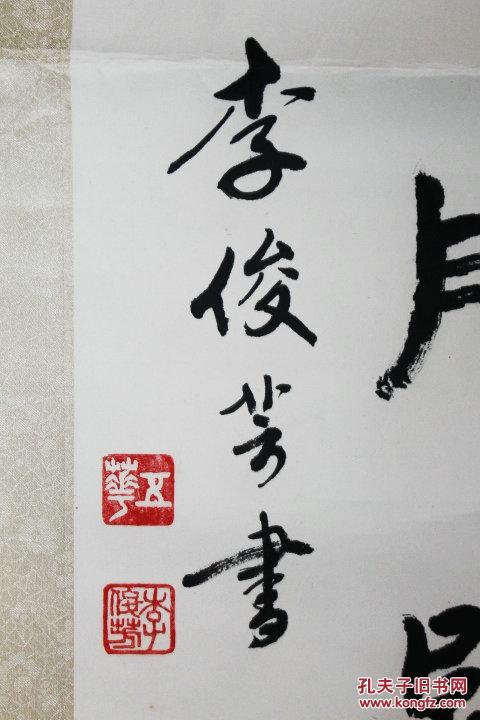 李俊芳書
五華
李俊芳
孔夫子旧书网
www.kongfz.com